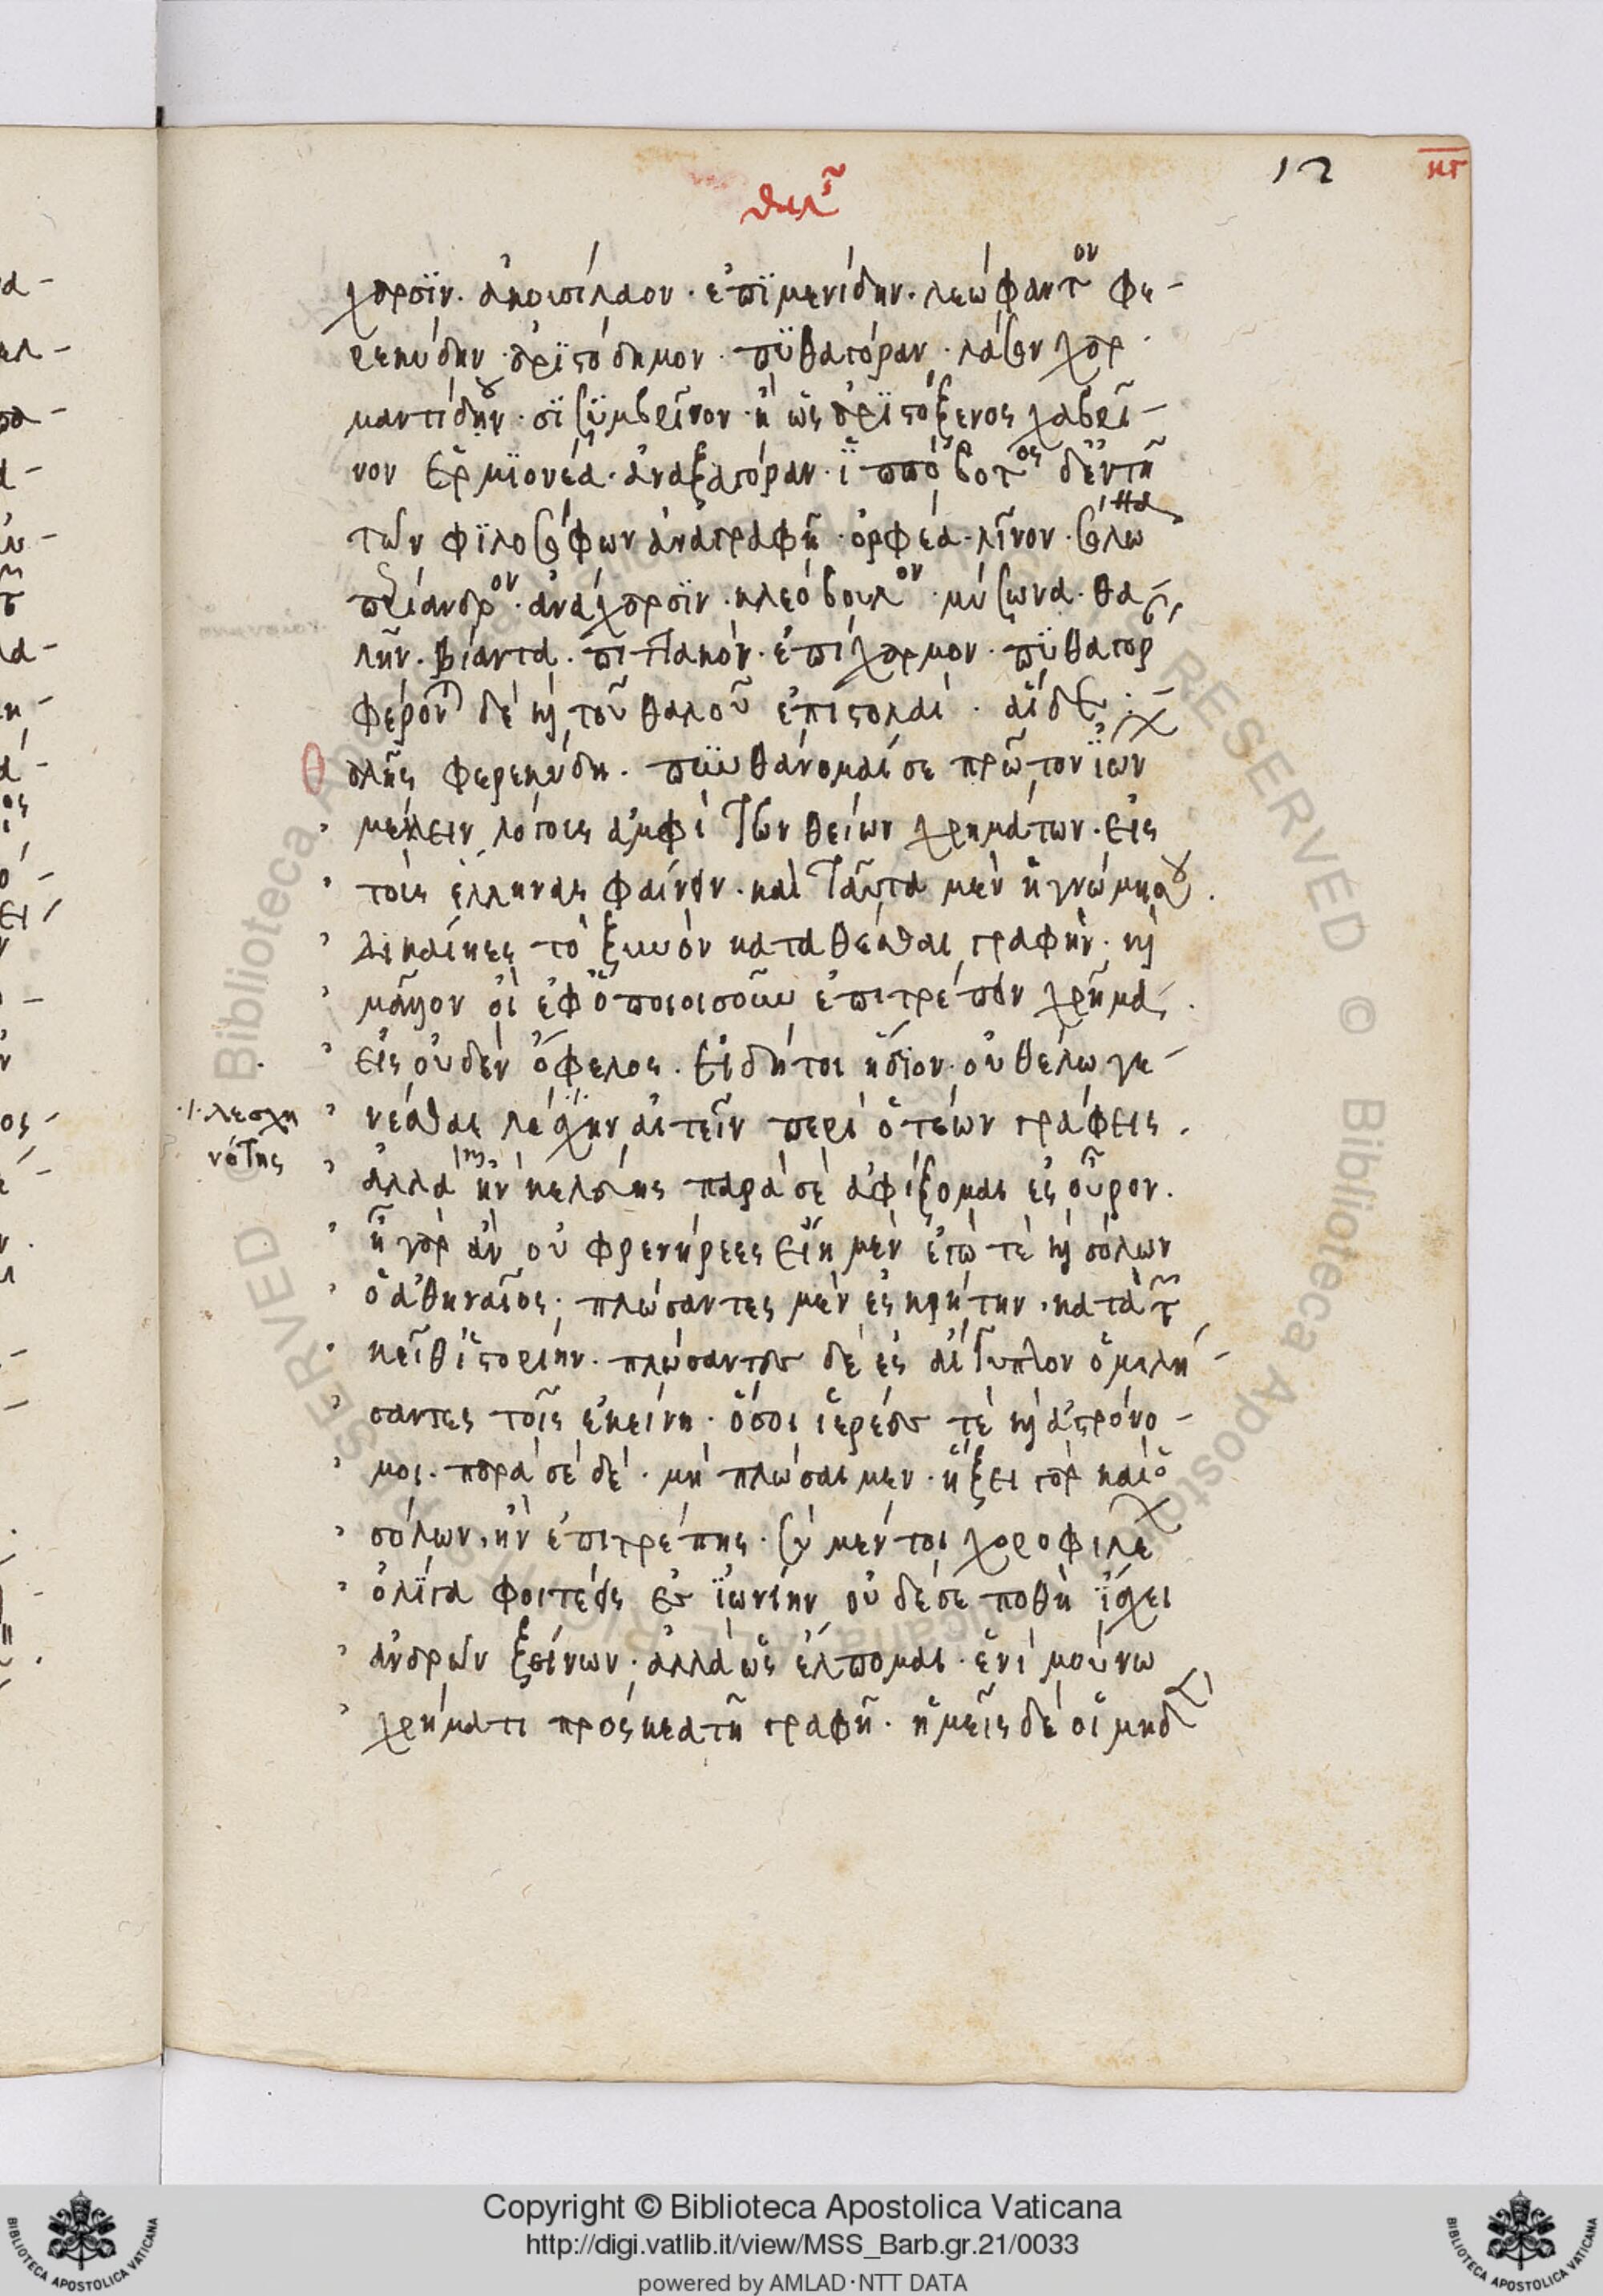 12
κγ
θαλῆς
χαρσϊν. ἀκουσίλαον. ἐπϊμενίδην. λεώφαντον φε-
ρεκύδην. ἀρϊστόδημον. πϋθαγόραν. λάσον χαρ
μαντίδου. σϊσϋμβρῖνον. ἢ ὡς ἀρϊστόξενος χαβρῖ-
νον ἑρμϊονέα. ἀναξαγόραν. ἵππόβοτος δ' ἐν τῆ
τῶν φϊλοσόφων ἀναγραφῆ. ὀρφέα. λῖνον. σόλωνα
περίανδρον. ἀνάχαρσϊν. κλεόβουλον. μύσωνα. θα-
λῆν. βίαντα. πιττακόν. ἐπίχαρμον. πϋθαγόρ
φέρονται δὲ καὶ τοῦ θαλοῦ ἐπιστολαὶ. αἵδε:
θαλῆς φερεκύδη. πυνθάνομαί σε πρῶτον ϊώνων
μέλλειν λόγους ἀμφὶ τῶν θείων χρημάτων. εἰς
τοὺς ἕλληνας φαίνειν. καὶ ταῦτα μὲν ἡ γνώμη σου.
δικαίη ἐς τὸ ξυνὸν καταθέσθαι γραφὴν. καὶ
μᾶλλον οἱ ἐφ' ὁποιοισοῦν ἐπιτρέπειν χρῆμα.
εἰς οὐδὲν ὄφελος. εἰ δή τοι ἥδϊον. οὐ θέλω γε-
νέσθαι λέσχην αἰτεῖν περὶ ὁτέων γράφεις.
.ι. λεσχη
νότης
ἀλλὰ ἢν κελεύης παρὰ σὲ ἀφίξομαι ἐς οὖρον.
ἦ γὰρ ἂν οὐ φρενήρεες εἴημεν ἐγώ τε καὶ σόλων
ὁ ἀθηναῖος. πλώσαντες μὲν ἐς κρήτην. κατὰ τὴν
κεῖθι ἱστορίην. πλώσαντες δὲ ἐς αἴγυπτον ὁμιλή-
σαντες τοῖς ἐκείνη. ὅσοι ἱερέες τε καὶ ἀστρόνο-
μοι. παρὰ σὲ δὲ. μὴ πλώσαιμεν. ἥξει γὰρ καὶ ὁ
σόλων, ἢν ἐπιτρέπης. σὺ μέντοι χοροφιλέχ
ὀλϊγα φοιτέεις ἐς ϊωνίην οὐδέ σε ποθὴ ϊσχει
ἀνδρῶν ξείνων. ἀλλὰ ὡς ἔλπομαι. ἑνὶ μούνω
χρήματι πρόσκεαι τῆ γραφῆ. ἡμεῖς δὲ οἱ μηδὲ
Copyright © Biblioteca Apostolica Vaticana
http://digi.vatlib.it/view/MSS_Barb.gr.21/0033
powered by AMLAD·NTT DATA